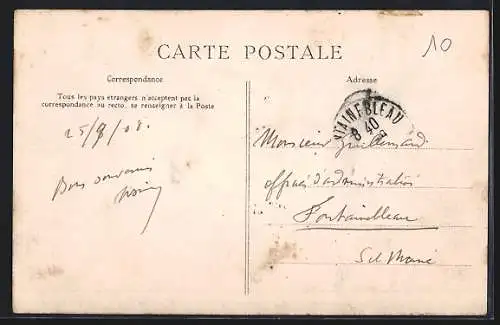 CARTE POSTALE
10
Correspondance
Tous les pays étrangers n'acceptent pas la
correspondance au recto, se renseigner à la Poste
25/9/08.
Bons souvenirs
Adresse
FONTAINEBLEAU
8 40
Monsieur Guillemard
officier d'administration
Fontainebleau
S et Marne